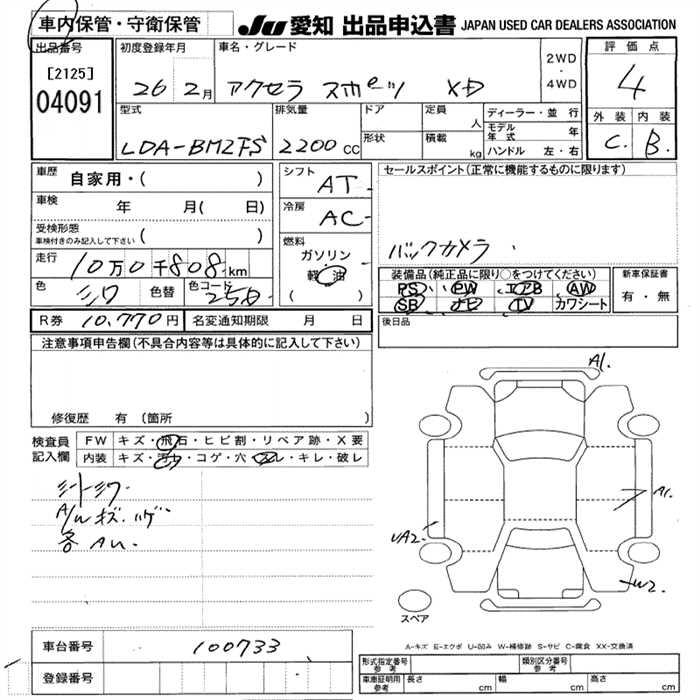 車内保管・守衛保管
JU 愛知 出品申込書 JAPAN USED CAR DEALERS ASSOCIATION
出品番号
[2125]
04091
初度登録年月
26 2月
車名・グレード
アクセラ スポーツ XD
2WD
・
4WD
評価点
4
外装 内装
C. B.
型式
LDA-BM2FS
排気量
2200 CC
ドア
形状
定員
人
積載
kg
ディーラー・並行
モデル年式 年
ハンドル 左・右
車歴 自家用・( )
車検 年 月( 日)
受検形態
車検付きのみ記入して下さい ( )
走行 10万0千808km
色 シロ 色替 色コード 25D
シフト
AT
冷房
AC
燃料
ガソリン
軽油
( )
セールスポイント(正常に機能するものに限ります)
バックカメラ
装備品(純正品に限り○をつけてください)
PS PW エアB AW
SB ナビ TV カワシート
新車保証書
有・無
後日品
R券 10,770円 名変通知期限 月 日
注意事項申告欄(不具合内容等は具体的に記入して下さい)
修復歴 有(箇所 )
検査員
記入欄
FW キズ・飛石・ヒビ割・リペア跡・X要
内装 キズ・汚れ・コゲ・穴・スレ・キレ・破レ
シートシワ
A/W キズ. ハゲ
各 AU.
A1.
A1
UA2.
W2
スペア
A-キズ E-エクボ U-凹み W-補修跡 S-サビ C-腐食 XX-交換済
車台番号 100733
登録番号
形式指定番号
参考
類別区分番号
参考
車庫証明用
参考
長さ cm 幅 cm 高さ cm